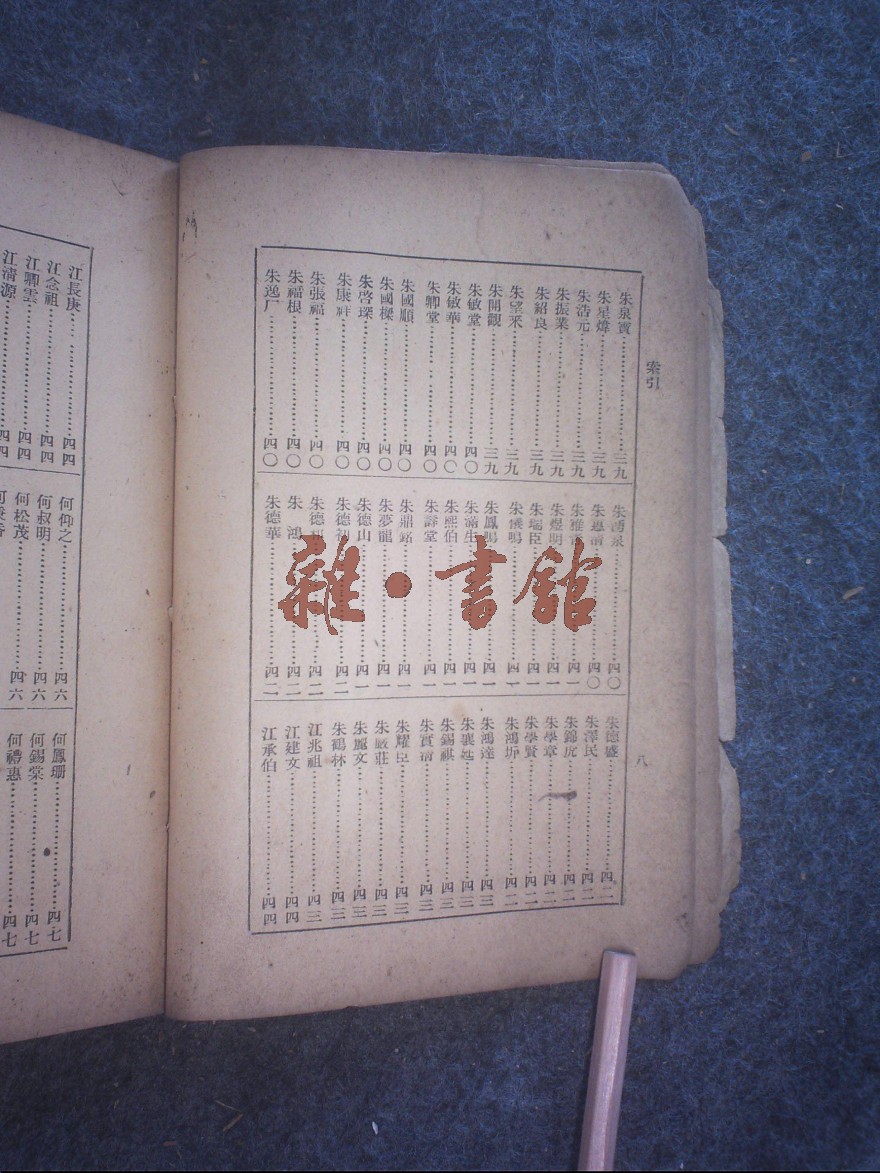 索引
八
朱泉寶 三九
朱星煒 三九
朱浩元 三九
朱振業 三九
朱紹良 三九
朱望釆 三九
朱開觀 三九
朱敏堂 四〇
朱敏華 四〇
朱卿堂 四〇
朱國順 四〇
朱國樑 四〇
朱啓琛 四〇
朱康祥 四〇
朱張福 四〇
朱福根 四〇
朱逸厂 四〇
朱湧泉 四〇
朱 清 四〇
朱雅 四一
朱煜明 四一
朱瑞臣 四一
朱 鳴 四一
朱鳳鳴 四一
朱滿生 四一
朱熙伯 四一
朱 堂 四一
朱鼎銘 四一
朱夢龍 四一
朱德山 四一
朱德 四二
朱德 四二
朱 鴻 四二
朱德華 四二
朱德盛 四二
朱澤民 四二
朱錦虎 四二
朱學章 四二
朱學賢 四二
朱鴻 四二
朱鴻達 四三
朱襄 四三
朱錫祺 四三
朱實清 四三
朱耀臣 四三
朱嚴莊 四三
朱麗文 四三
朱鶴林 四三
江兆祖 四三
江建文 四四
江承伯 四四
江長庚 四四
江念祖 四四
江卿雲 四四
江清源 四四
何仰之 四六
何叔明 四六
何松茂 四六
何鳳珊 四七
何錫棠 四七
何禮惠 四七
雜·書館